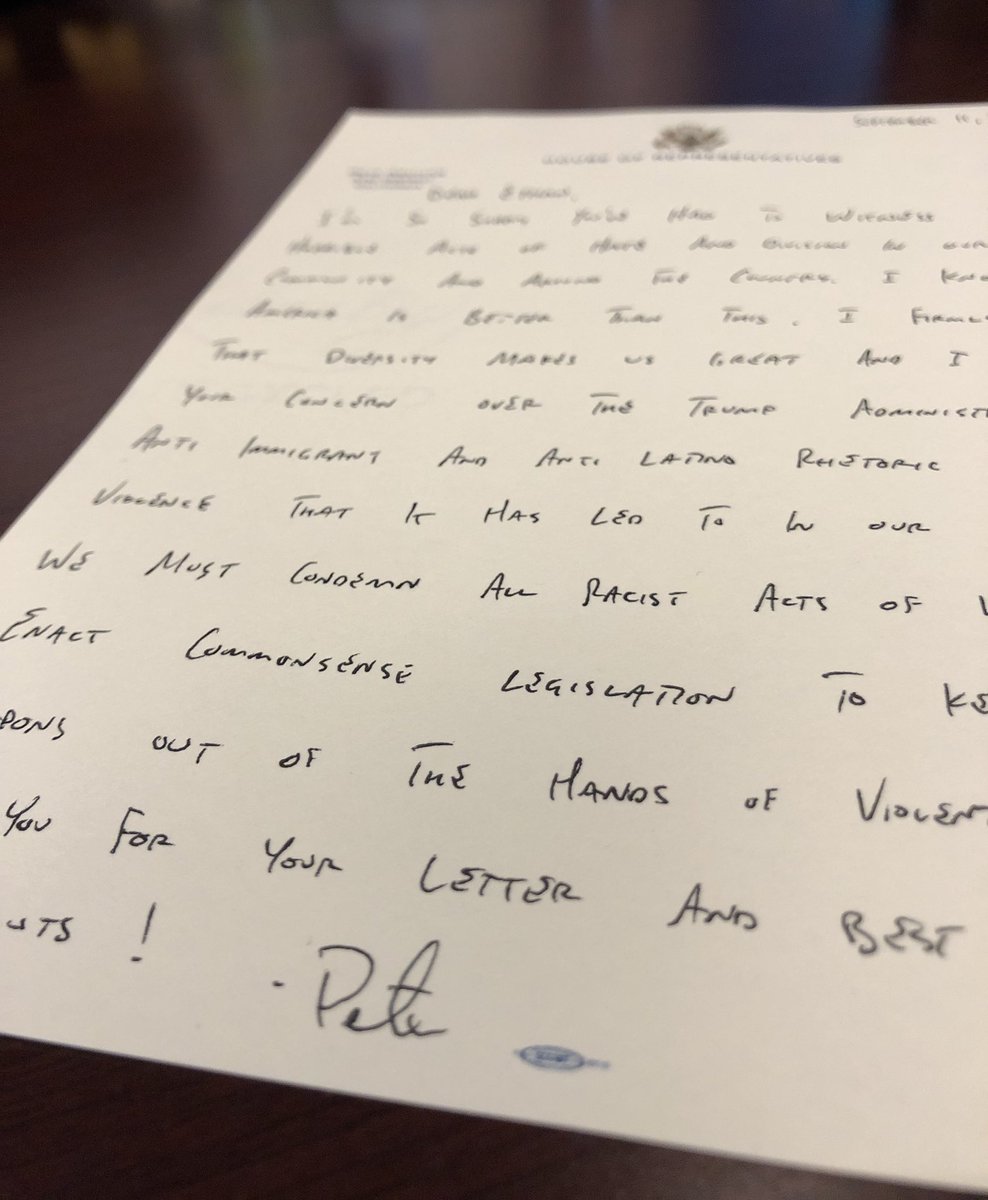 HOUSE OF REPRESENTATIVES
I'm so sorry you've had to witness
horrible acts of hate and
community and around the country. I
America is better than this. I
That Diversity makes us great and I
Your concern over the Trump
Anti Immigrant and Anti Latino Rhetoric
Violence that it has led to in our
We must condemn all racist acts of
Enact commonsense legislation to
out of the hands of
You for your letter and best
!
- Pete